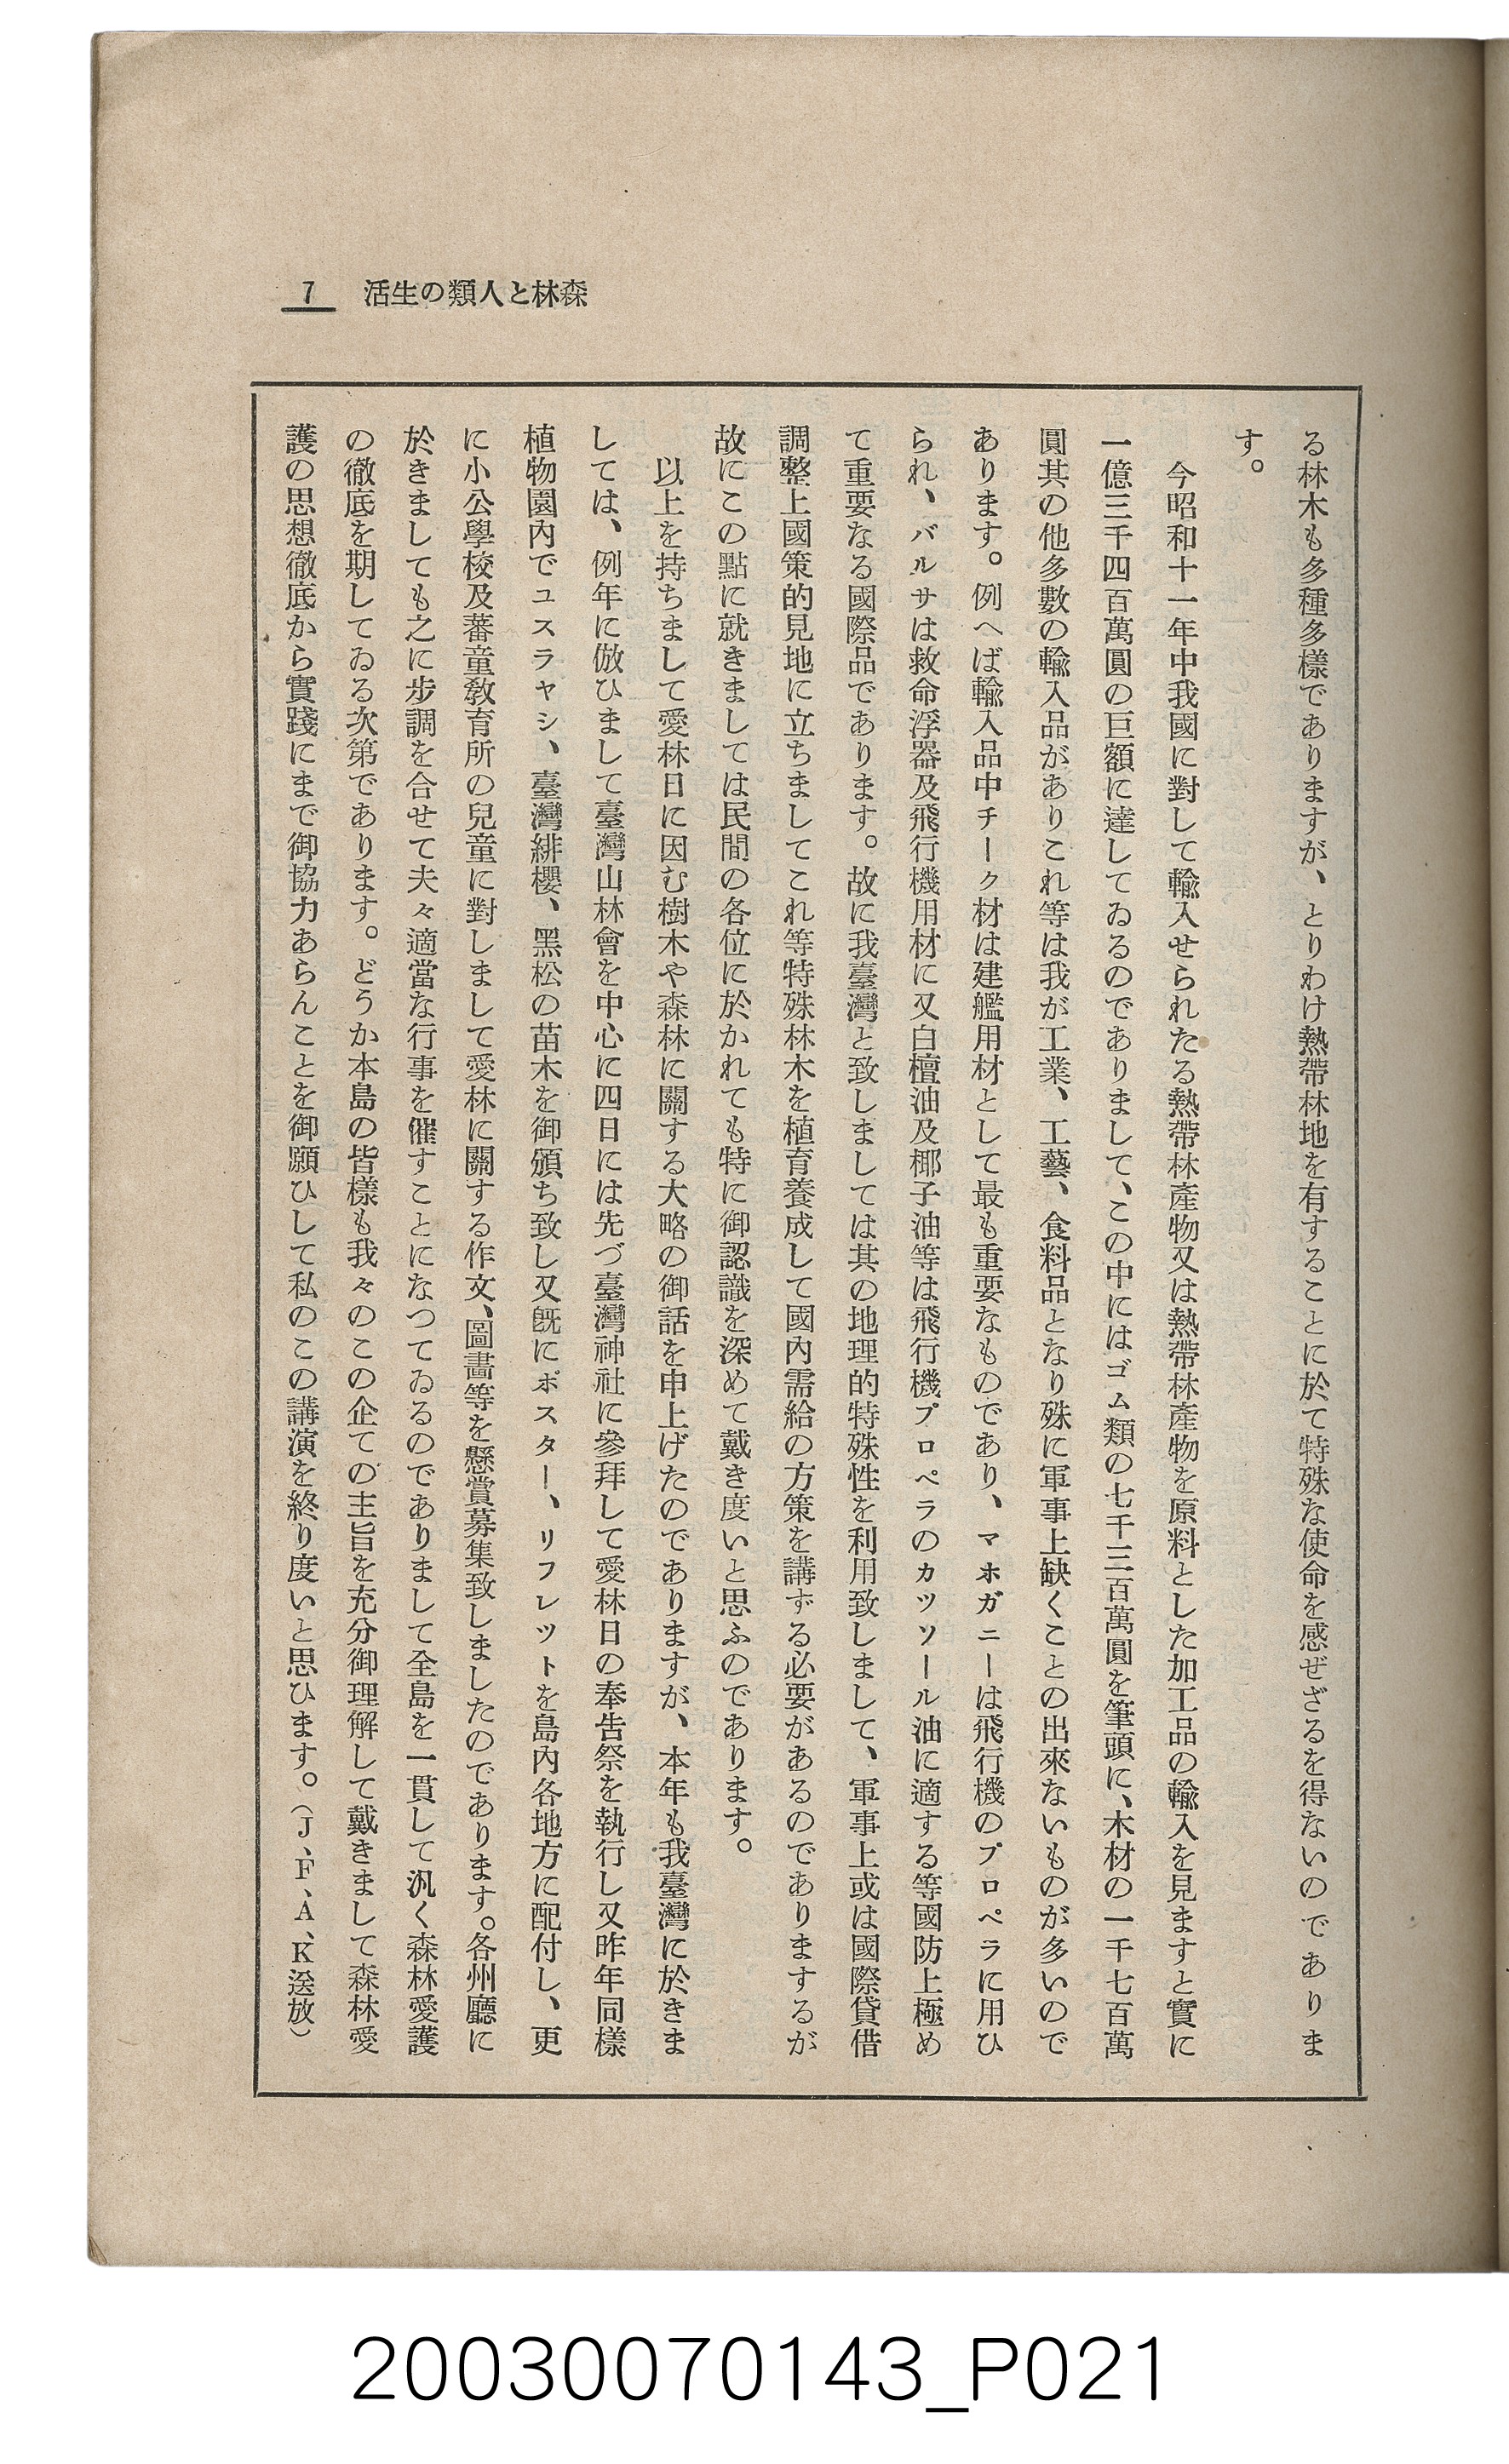 7　活生の類人と林森
る林木も多種多樣でありますが、とりわけ熱帶林地を有することに於て特殊な使命を感ぜざるを得ないのでありま
す。
　今昭和十一年中我國に對して輸入せられたる熱帶林產物又は熱帶林產物を原料とした加工品の輸入を見ますと實に
一億三千四百萬圓の巨額に達してゐるのでありまして、この中にはゴム類の七千三百萬圓を筆頭に、木材の一千七百萬
圓其の他多數の輸入品がありこれ等は我が工業、工藝、食料品となり殊に軍事上缺くことの出來ないものが多いので
あります。例へば輸入品中チーク材は建艦用材として最も重要なものであり、マホガニーは飛行機のプロペラに用ひ
られ、バルサは救命浮器及飛行機用材に又白檀油及椰子油等は飛行機プロペラのカツソール油に適する等國防上極め
て重要なる國際品であります。故に我臺灣と致しましては其の地理的特殊性を利用致しまして、軍事上或は國際貸借
調整上國策的見地に立ちましてこれ等特殊林木を植育養成して國內需給の方策を講ずる必要があるのでありまするが
故にこの點に就きましては民間の各位に於かれても特に御認識を深めて戴き度いと思ふのであります。
　以上を持ちまして愛林日に因む樹木や森林に關する大略の御話を申上げたのでありますが、本年も我臺灣に於きま
しては、例年に倣ひまして臺灣山林會を中心に四日には先づ臺灣神社に參拜して愛林日の奉吿祭を執行し又昨年同樣
植物園內でユスラヤシ、臺灣緋櫻、黑松の苗木を御頒ち致し又旣にポスター、リフレツトを島內各地方に配付し、更
に小公學校及蕃童敎育所の兒童に對しまして愛林に關する作文、圖畫等を懸賞募集致しましたのであります。各州廳に
於きましても之に步調を合せて夫々適當な行事を催すことになつてゐるのでありまして全島を一貫して汎く森林愛護
の徹底を期してゐる次第であります。どうか本島の皆樣も我々のこの企ての主旨を充分御理解して戴きまして森林愛
護の思想徹底から實踐にまで御協力あらんことを御願ひして私のこの講演を終り度いと思ひます。（J、F、A、K送放）
20030070143_P021